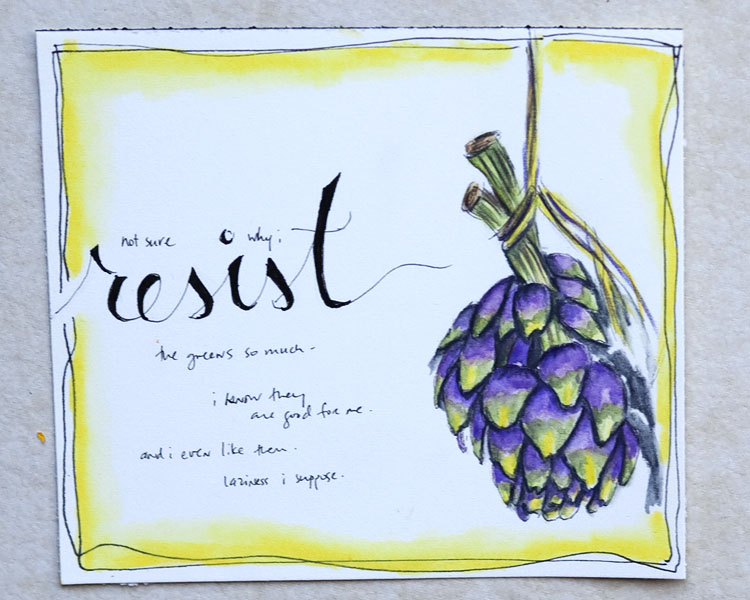 not sure why i
resist
the greens so much.
i know they
are good for me.
and i even like them.
laziness i suppose.